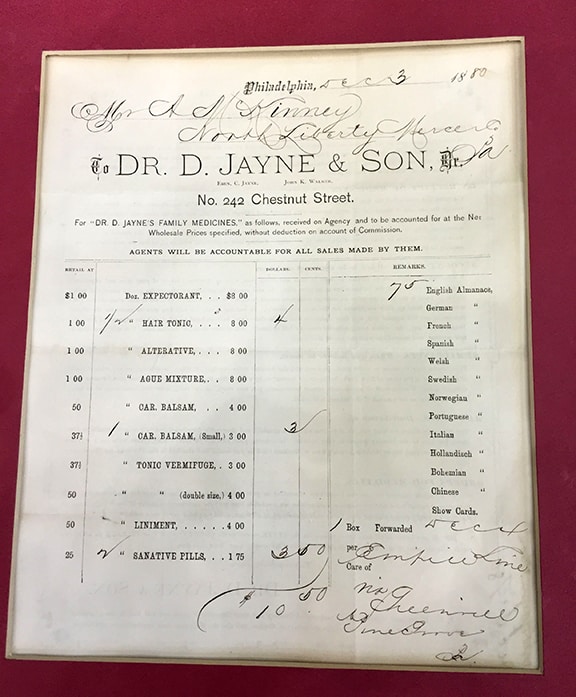 Philadelphia, Dec 3 1880
Mr A McKinney
North Liberty Mercer Co
Pa
To DR. D. JAYNE & SON, Dr.
EBEN. C. JAYNE, JOHN K. WALKER.
No. 242 Chestnut Street.
For "DR. D. JAYNE'S FAMILY MEDICINES," as follows, received on Agency and to be accounted for at the Net
Wholesale Prices specified, without deduction on account of Commission.
AGENTS WILL BE ACCOUNTABLE FOR ALL SALES MADE BY THEM.
RETAIL AT DOLLARS. CENTS. REMARKS.
$1 00 Doz. EXPECTORANT, . . $8 00 75 English Almanacs,
German "
1 00 1/2 " HAIR TONIC, . . . 8 00 4
French "
Spanish "
1 00 " ALTERATIVE, . . . 8 00
Welsh "
1 00 " AGUE MIXTURE, . . 8 00 Swedish "
Norwegian "
50 " CAR. BALSAM, . . 4 00
Portuguese "
37½ 1 " CAR. BALSAM, (Small,) 3 00 3 Italian "
Hollandisch "
37½ " TONIC VERMIFUGE, . 3 00
Bohemian "
50 " " (double size,) 4 00 Chinese "
Show Cards.
50 " LINIMENT, . . . . . 4 00 1 Box Forwarded Dec 4
per Empire Line
25 2 " SANATIVE PILLS, . . 1 75 3 50
Care of
via Greenville
$ 10 50
& Pine Grove